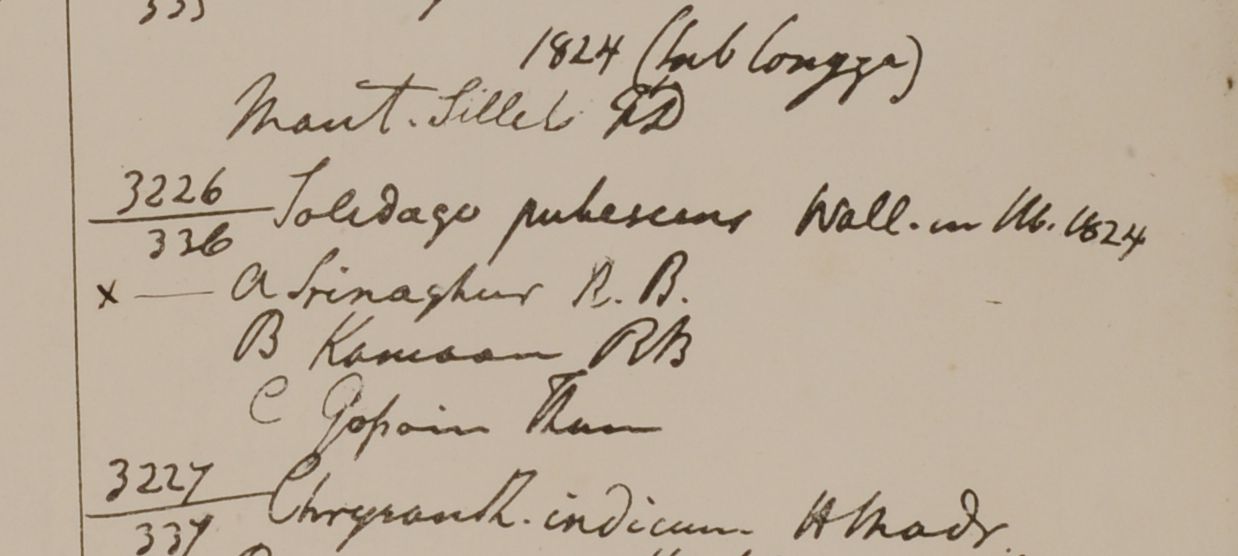 335
1824 (sub Conyza)
Mont. Sillet FD
3226 Solidago pubescens Wall. in Hb. 1824
336
x — a Srinaghur R. B.
B Kamaon RB
C Gosain Than
3227 Chrysanth. indicum H Madr.
337